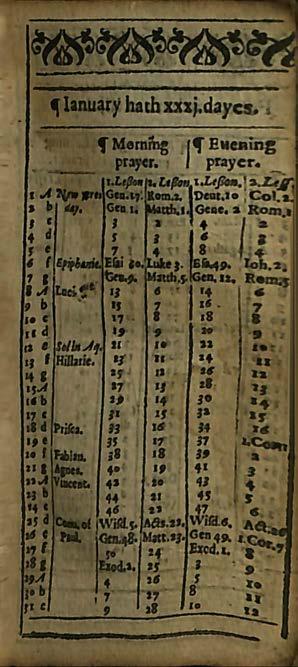 ¶ Ianuary hath xxxj. dayes.
¶ Morning ¶ Euening
prayer. prayer.
1. Leßon 2. Leßon. 1. Leßon. 2. Leß
1 A New yeres Gen. 17. Rom. 2. Deut. 10 Col. 2.
2 b day. Gen 1. Matth. 1. Gene. 2 Rom. 1
3 c 3 2 4 2
4 d 5 3 6 3
5 e 7 4 8 4
6 f Epiphanie. Esai 60. Luke 3. Esa. 49. Ioh. 2.
7 g Gen. 9. Matth. 5. Gen. 12. Rom. 5
8 A Luci 13 6 14 6
9 b 15 7 16 7
10 c 17 8 18 8
11 d 19 9 20 9
12 e Sol in Aq. 21 10 22 10
13 f Hillarie. 23 11 24 11
14 g 25 12 26 12
15 A 27 13 28 13
16 b 29 14 30 14
17 c 31 15 32 15
18 d Prisca. 33 16 34 16
19 e 35 17 37 1. Cor
20 f Fabian. 38 18 39 2
21 g Agnes. 40 19 41 3
22 A Vincent. 42 20 43 4
23 b 44 21 45 5
24 c 46 22 47 6
25 d Conu. of Wisd. 5. Acts. 22. Wisd. 6. Act. 26
26 e Paul. Gen. 48. Matt. 23. Gen 49. 1. Cor. 7
27 f 50 24 Exod. 1. 8
28 g Exod. 2. 25 3 9
29 A 4 26 5 10
30 b 7 27 8 11
31 c 9 28 10 12